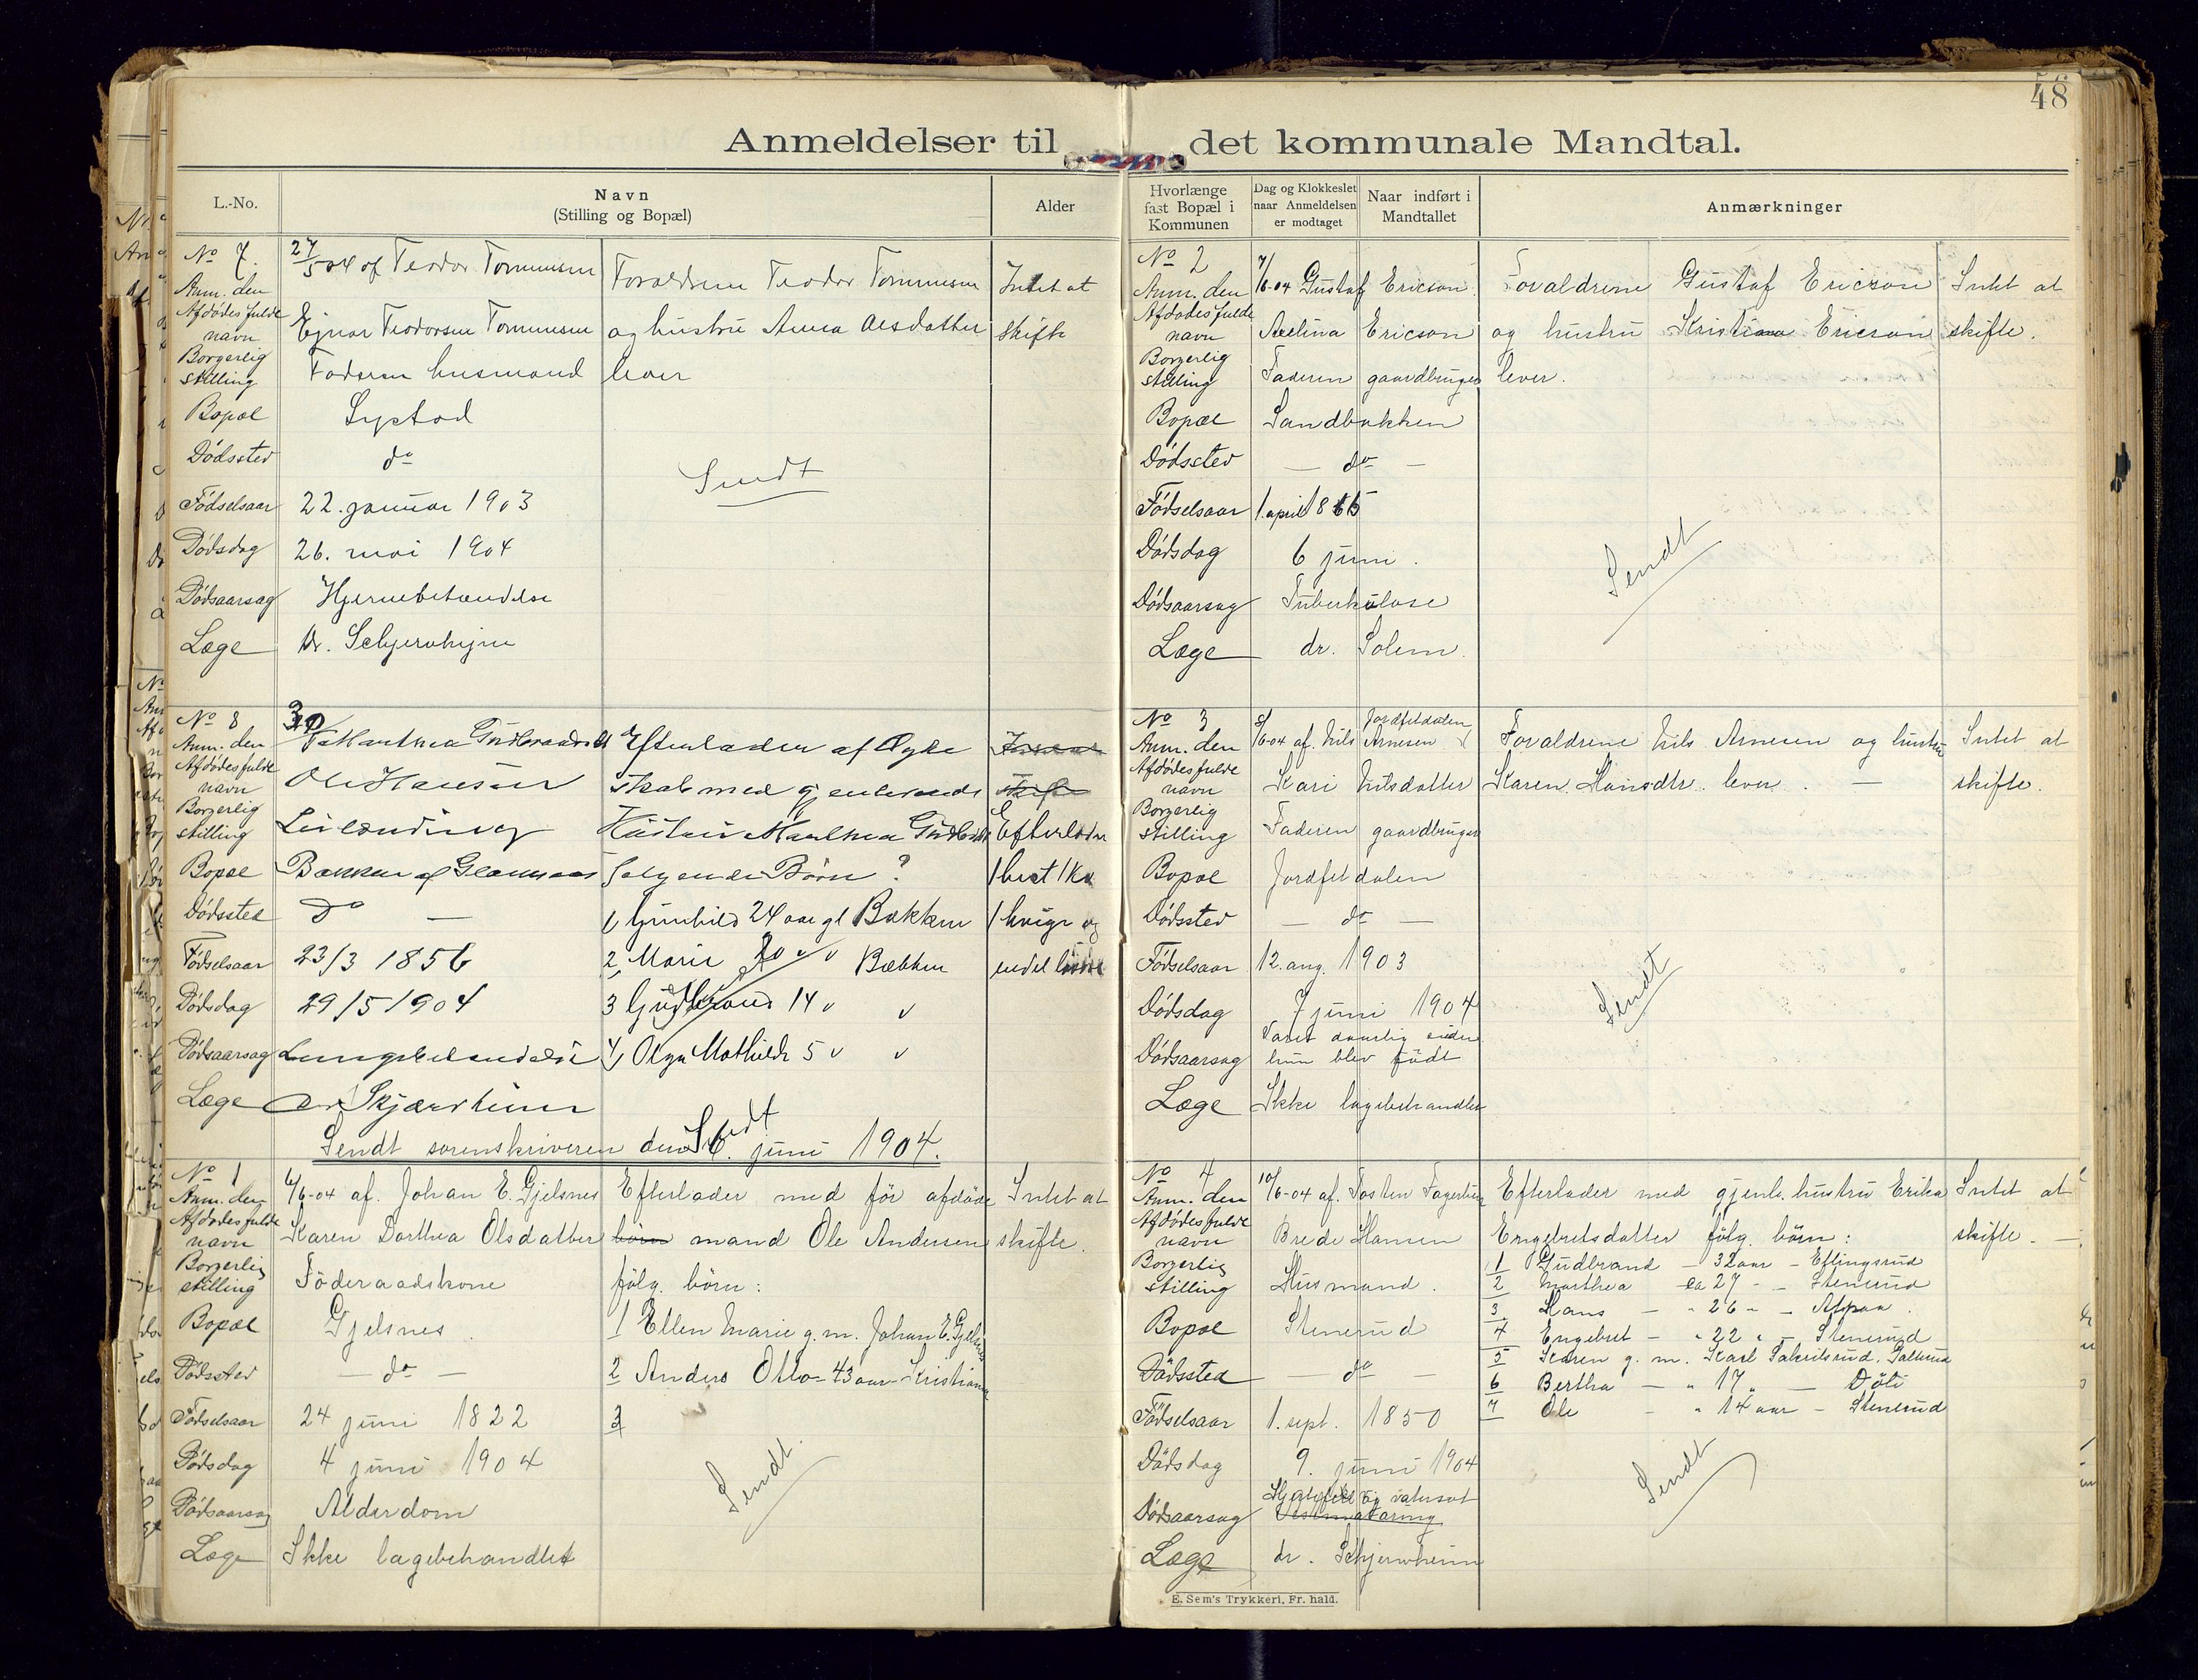 48
Anmeldelser til det kommunale Mandtal.
L.-No.
Navn
(Stilling og Bopæl)
Alder
Hvorlænge fast Bopæl i Kommunen
Dag og Klokkeslet naar Anmeldelsen er modtaget
Naar indført i Mandtallet
Anmærkninger
No 7.
Anm. den 27/5 04 af Teodor Tommesen Forældrene Teodor Tommesen Intet at
Afdødes fulde navn Ejnar Teodorsen Tommesen og hustru Anna Olsdatter skifte
Borgerlig stilling Faderen husmand lever
Bopæl Systad
Dødssted do
Sendt
Fødselsaar 22. januar 1903
Dødsdag 26. mai 1904
Dødsaarsag Hjernebetændelse
Læge Dr. Schjervheim
No 8
Anm. den Efterlader af Ægte
Afdødes fulde navn Ole Hansen skab med gjenlevende
Borgerlig stilling Hustru Marthea Efterlader
Bopæl Bakken af følgende Børn? 1 hest 1 ku
Dødssted do — 1) Gunhild 24 aar gl Bakken 1 kvige og
Fødselsaar 23/3 1856 2 Marie 20 " " Bakken endel
Dødsdag 29/5 1904 3 Gudbrand 14 " "
Dødsaarsag Lungebetændelse 4) Olga Mathilde 5 " "
Læge Dr Skjærvheim
Sendt
Sendt sorenskriveren den 6. juni 1904.
No 1
Anm. den 6/6-04 af. Johan E. Gjelsnes Efterlader med før afdøde Intet at
Afdødes fulde navn Karen Dorthea Olsdatter børn mand Ole Andersen skifte.
Borgerlig stilling Föderaadskone følg. børn:
Bopæl Gjelsnes. 1 Ellen Marie g. m. Johan E. Gjelsnes
Dødssted — do — 2 Anders Otto - 43 aar - Kristiania
Fødselsaar 24 juni 1822 3
Dødsdag 4 juni 1904
Sendt.
Dødsaarsag Alderdom
Læge Ikke lægebehandlet
No 2
Anm. den 7/6-04 Gustaf Ericson. Forældrene Gustaf Ericson Intet at
Afdødes fulde navn Axelina Ericson og hustru Kristiana Ericson skifte.
Borgerlig stilling Faderen gaardbruger lever.
Bopæl Sandbakken
Dødssted — do —
Fødselsaar 1. april
Dødsdag 6 juni.
Sendt
Dødsaarsag Tuberkulose
Læge dr. Solem.
No 3
Anm. den 8/6-04 af. Nils Arnesen Jordfetdalen Forældrene Nils Arnesen og hustru Intet at
Afdødes fulde navn Kari Nilsdatter Karen Hansdtr. lever. — skifte.
Borgerlig stilling Faderen gaardbruger
Bopæl Jordfetdalen
Dødssted — do —
Fødselsaar 12. aug. 1903
Sendt
Dødsdag 7 juni 1904
Dødsaarsag Været daarlig siden hun blev født
Læge Ikke lægebehandlet
No 4
Anm. den 10/6-04 af. Tosten Fagerlund Efterlader med gjenlv. hustru Erika Intet at
Afdødes fulde navn Brede Hansen Engebretsdatter følg. börn: skifte. —
Borgerlig stilling Husmand.
1 Gudbrand — 32 aar — Eftingsrud
2 Marthea — ca 27 " — Stenerud
3 Hans — " 26 " —
Bopæl Stenerud
4 Engebret — " 22 " — Stenerud
5 Karen g. m. Karl
Dødssted — do —
6 Bertha — " 17 " — Döli
7 Ole — " 14 aar — Stenerud
Fødselsaar 1. sept. 1850
Dødsdag 9. juni 1904
Sendt
Dødsaarsag Hjertefeil og vatersot
Læge dr. Schjervheim
E. Sem's Trykkeri, Fr. hald.